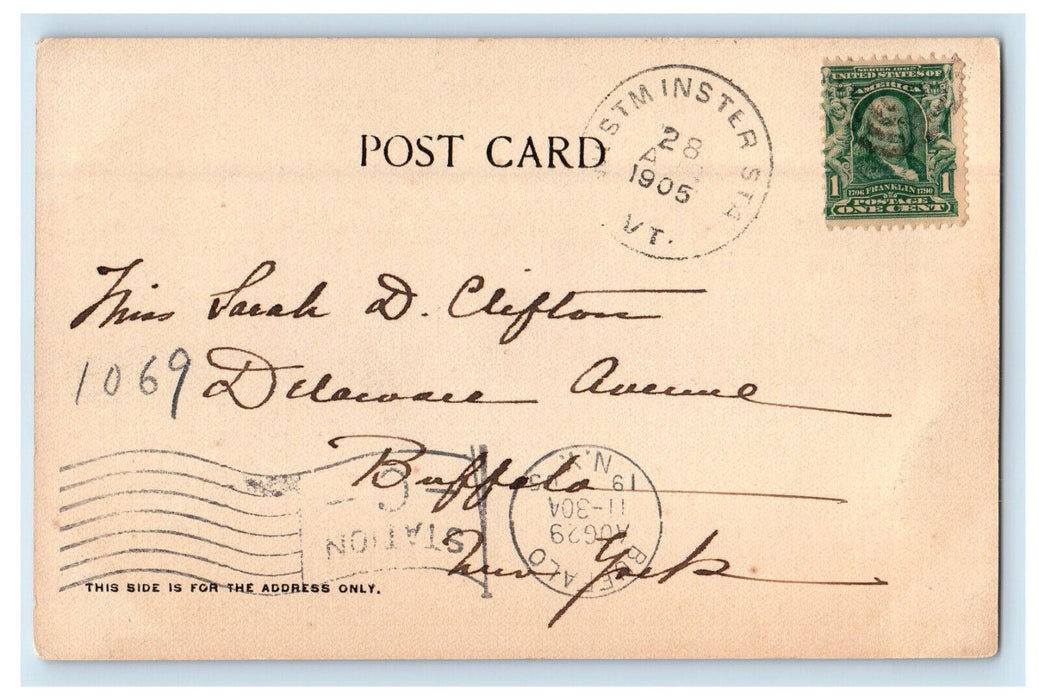 POST CARD
WESTMINSTER STA
28
1905
VT.
SERIES 1902
UNITED STATES OF
AMERICA
1 1706 FRANKLIN 1790 1
POSTAGE
ONE CENT
Miss Sarah D. Clifton
1069 Delaware Avenue
Buffalo
New York
STATION
- C -
BUFFALO
AUG 29
11-30A
1905
N.Y.
THIS SIDE IS FOR THE ADDRESS ONLY.